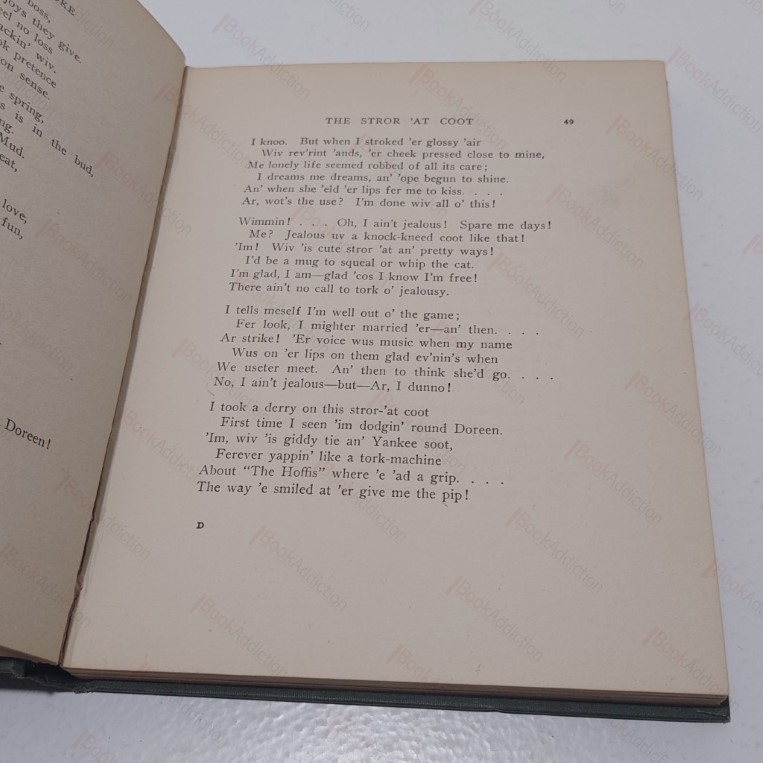 OKE
boss,
joys they give.
eel no loss
ackin' wiv.
ok pretence
on sense.
e spring,
s is in the bud,
ng.
Mud.
eat,
love,
fun,
Doreen!
THE STROR 'AT COOT 49
I knoo. But when I stroked 'er glossy 'air
Wiv rev'rint 'ands, 'er cheek pressed close to mine,
Me lonely life seemed robbed of all its care;
I dreams me dreams, an' 'ope begun to shine.
An' when she 'eld 'er lips fer me to kiss. . . .
Ar, wot's the use? I'm done wiv all o' this!
Wimmin! . . . Oh, I ain't jealous! Spare me days!
Me? Jealous uv a knock-kneed coot like that!
'Im! Wiv 'is cute stror 'at an' pretty ways!
I'd be a mug to squeal or whip the cat.
I'm glad, I am—glad 'cos I know I'm free!
There ain't no call to tork o' jealousy.
I tells meself I'm well out o' the game;
Fer look, I mighter married 'er—an' then. . . .
Ar strike! 'Er voice wus music when my name
Wus on 'er lips on them glad ev'nin's when
We useter meet. An' then to think she'd go. . . .
No, I ain't jealous—but—Ar, I dunno!
I took a derry on this stror-'at coot
First time I seen 'im dodgin' round Doreen.
'Im, wiv 'is giddy tie an' Yankee soot,
Ferever yappin' like a tork-machine
About "The Hoffis" where 'e 'ad a grip. . . .
The way 'e smiled at 'er give me the pip!
D
BookAddiction